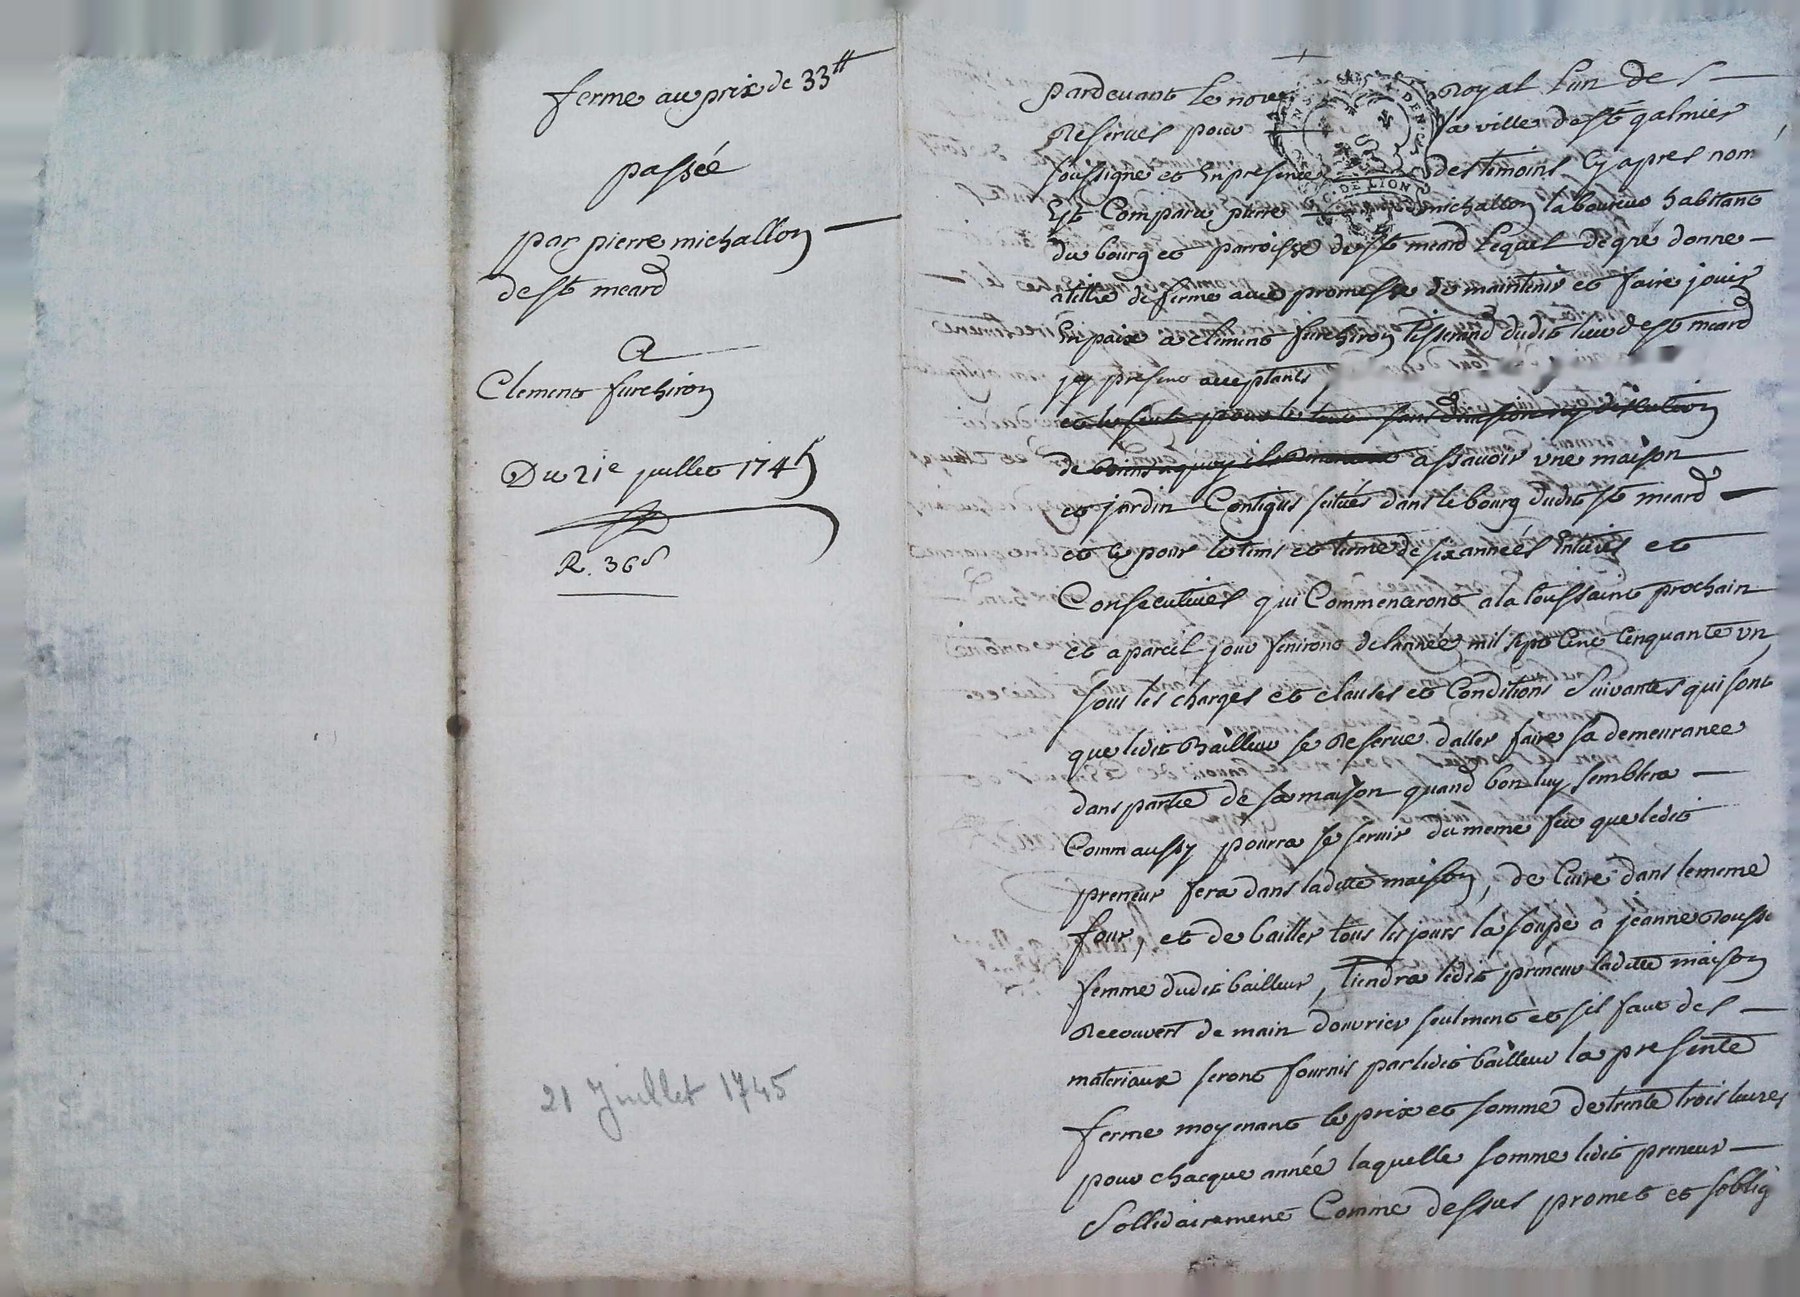 ferme au prix de 33tt
passée
par pierre michallon
de st meard
A
Clement furchiron
Du 21e juillet 1745
R. 36s
21 Juillet 1745
pardevant le nore Royal l'un des
Reservés pour la ville de st galmier
soussigné et en presence des temoins cy apres nom
Est Comparu pierre michallon laboureur habitant
du bourg et parroisse de st meard lequel de gré donne
a titre de ferme avec promesse de maintenir et faire jouir
en paix a climent furchiron tisserand dudit lieu de st meard
icy present acceptants
et le seul pour le tout sans division ny discution
de assavoir une maison
et jardin Contigus scitués dans le bourg dudit st meard
et ce pour le tems et terme de six années entieres et
Consecutives qui Commenceront a la toussaint prochain
et a pareil jour finiront de l'année mil sept Cent Cinquante un
sous les charges et clauses et Conditions suivantes qui sont
que ledit Bailleur se Reserve d'aller faire sa demeurance
dans partie de sa maison quand bon luy semblera
Comm aussy pourra se servir du meme feu que ledit
preneur fera dans laditte maison, de Cuire dans le meme
four, et de bailler tous les jours la soupe a jeanne
femme dudit bailleur, tiendra ledit preneur laditte maison
Recouvert de main d'ouvrier seulment et s'il faut des
materiaux seront fournis par ledit bailleur la presente
ferme moyenant le prix et somme de trente trois livres
pour chacque année laquelle somme ledit preneur
Sollidairement Comme dessus promet et s'oblig
DE LION